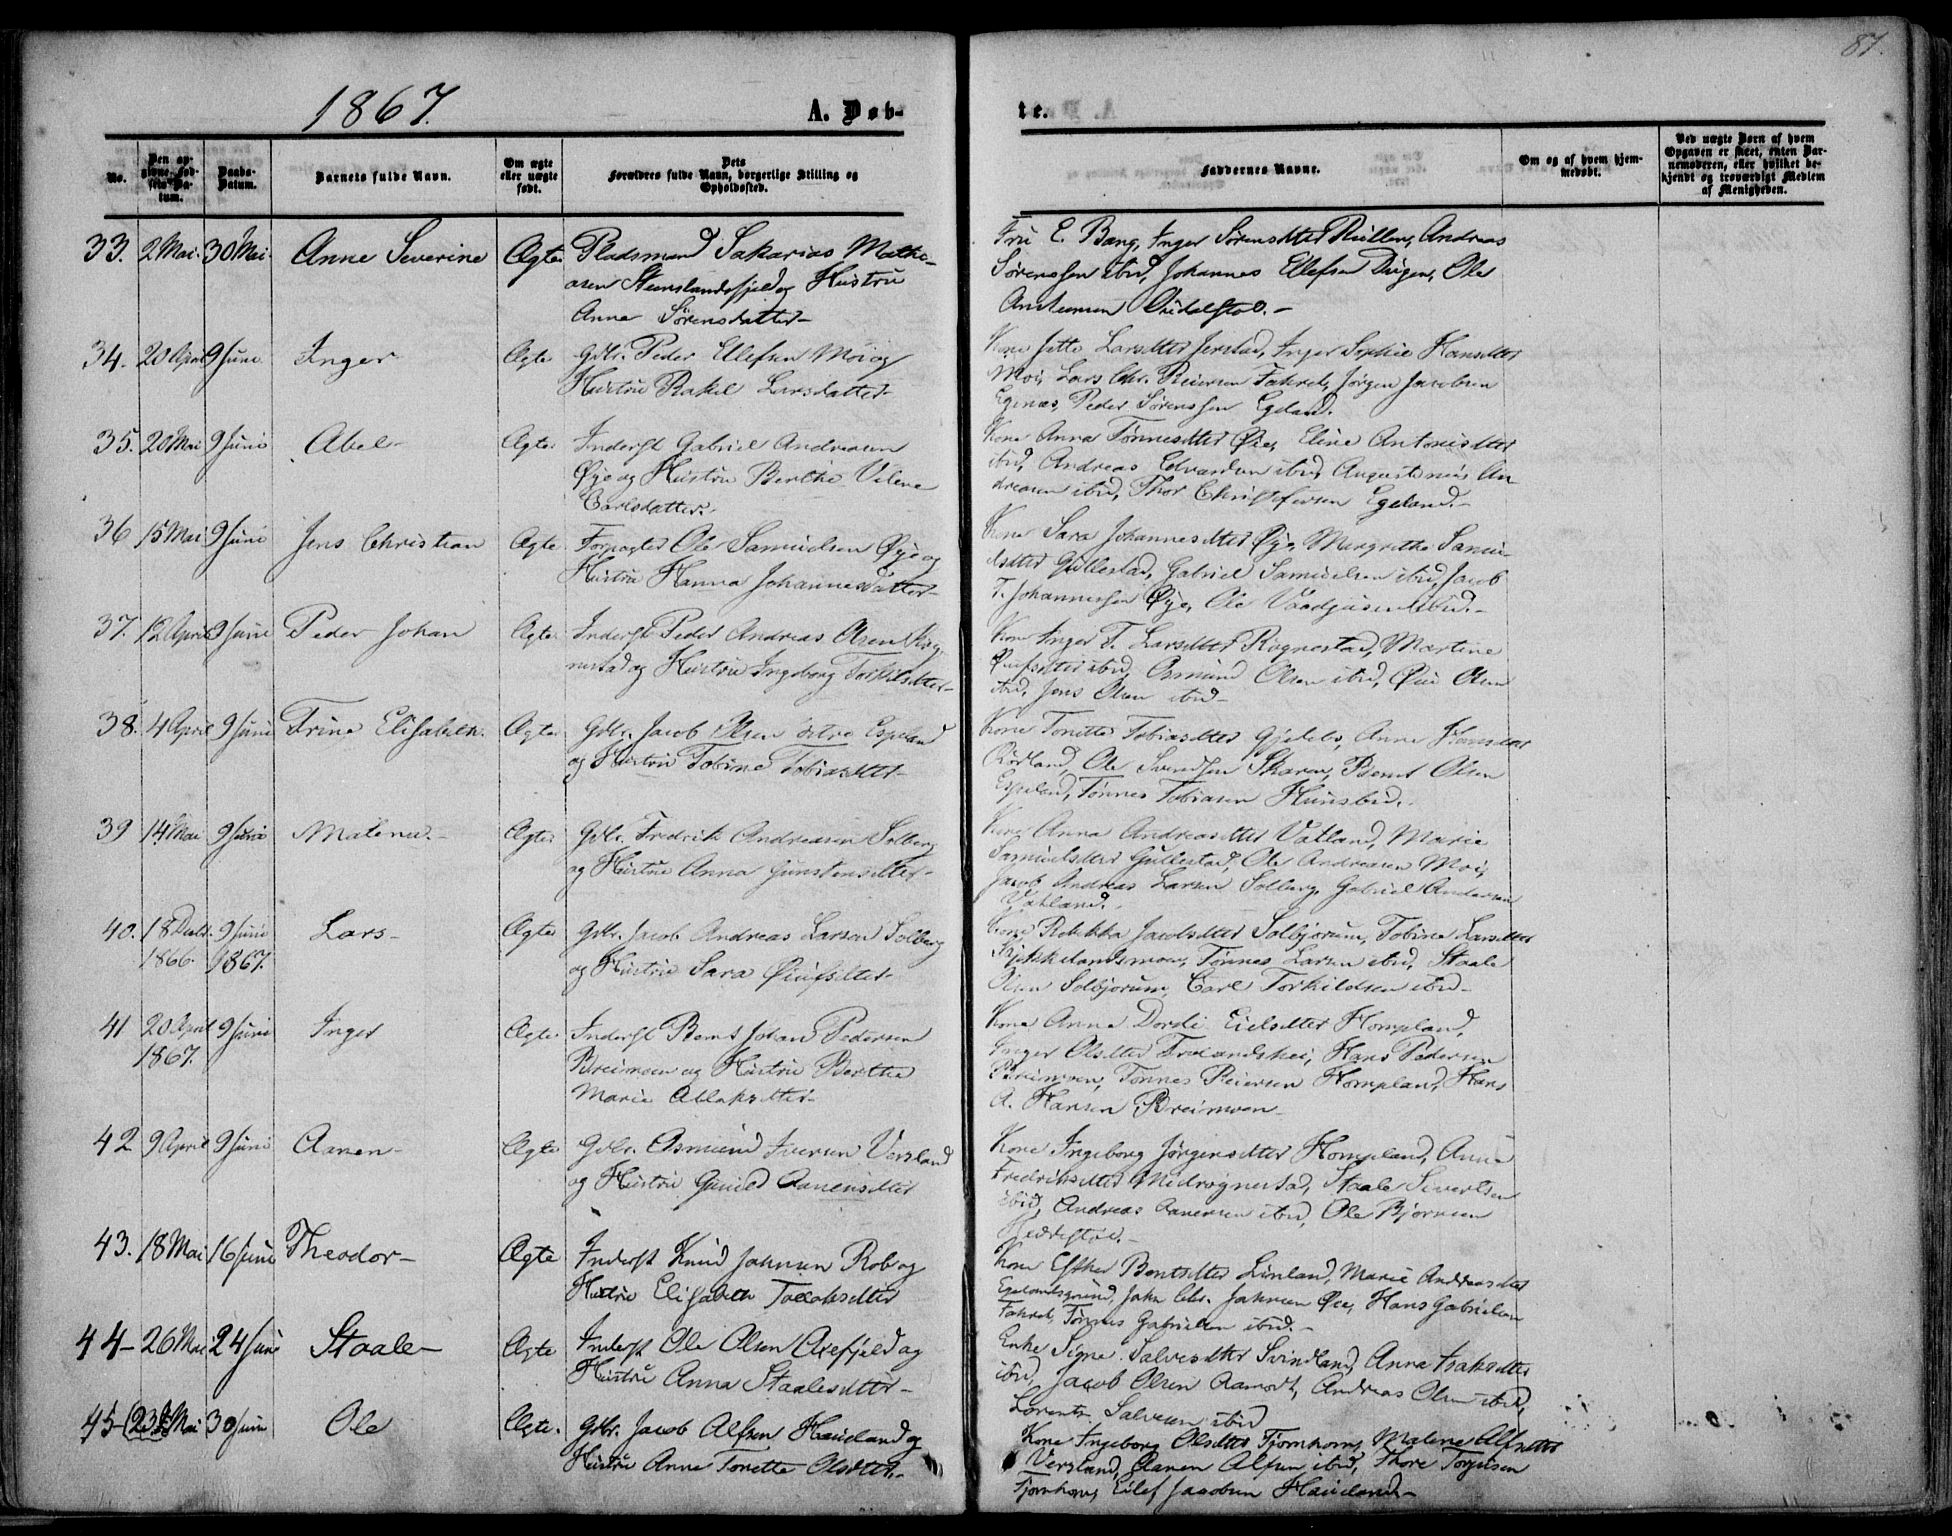 87.
1867.
A. Døb-
te.
No.
Den an-
givne Fød-
sels Da-
tum.
Daabs-
Datum.
Barnets fulde Navn.
Om ægte
eller uægte
født.
Dets
Forældres fulde Navn, borgerlige Stilling og
Opholdssted.
Faddernes Navne.
Om og af hvem hjem-
medøbt.
Ved uægte Børn af hvem
Opgaven er skeet, enten Bar-
nemoderen, eller hvilket be-
kjendt og troværdigt Medlem
af Menigheden.
33. 2 Mai. 30 Mai. Anne Severine Ægte Pladsmand Sakarias Mathe-
asen Steenslandsfjeld og Hustru
Anna Sörensdatter-
Fru E. Bang, Inger Sörensdtter Andreas
Sörenssen ibid, Johannes Ellefsen Ole
34. 20 April 9 Juni Inger Ægte Gdbr. Peder Ellefsen Moi og
Hustru Rakel Larsdatter-
Kone Jette Larsdtter Jerstad, Inger Sophie Hansdtter
Moi, Lars Chr. Reiersen Fahret, Jørgen Jacobsen
Egenæs, Peder Sörenssen Egeland.
35. 20 Mai 9 Juni Abel- Ægte. Inderst Gabriel Andreasen
Øye og Hustru Berthe Velene
Carlsdatter.
Kone Anna Tönnesdtter Øie, Eline Antonisdtter
ibid, Andreas Edvardsen ibid, Augustinus An
dreasen ibid, Thor Christofersen Egeland.-
36 15 Mai 9 Juni Jens Christian Ægte Forpagter Ole Samuelsen Øye og
Hustru Hanna Johannesdatter-
Kone Sara Johannesdtter Øye, Margrethe Samu-
elsdtter Gullestad, Gabriel Samuelsen ibid, Jacob
T. Johannessen Øye, Ole ibid.-
37. 12 April 9 Juni Peder Johan Ægte. Inderst Peder Andreas Olsen Rög-
nestad og Hustru Ingeborg Torkilsdtter-
Kone Inger T. Larsdtter Rögnestad, Martine
ibid, Asmund Olsen ibid, Olsen
ibid, Jens Olsen ibid-
38. 4 April 9 Juni Trine Elisabeth. Ægte. Gdbr. Jacob Olsen Espeland
og Hustru Tobine Tobiasdtter-
Kone Tonette Tobiasdtter Anne Hansdtter
Rörland, Ole Svendsen Skaren, Bernt Olsen
Espeland, Tönnes Tobiasen Hunsbed.
39 14 Mai 9 Juni Malena. Ægte. Gdbr. Fredrik Andreasen Solberg
og Hustru Anna Gunstensdtter-
Kone Anna Andreasdtter Vatland, Marie
Samuelsdtter Gullestad, Ole Andreasen Moi,
Jacob Andreas Larsen Solberg, Gabriel Andersen
Vatland.
40. 18 Decbr. 1866. 9 Juni 1867. Lars- Ægte Gdbr. Jacob Andreas Larsen Solberg
og Hustru Sara
Kone Rebekka Jacobsdtter Solbjorum, Tobine Larsdtter
Tönnes Larsen ibid, Staale
Olsen Solbjorum, Carl Torkildsen ibid-
41 20 April 1867. 9 Juni Inger Ægte Inderst Bernt Johan Pedersen
Breimoen og Hustru Berthe
Marie Atlaksdtter-
Kone Anne Dordi Eielsdtter Hompland,
Inger Olsdtter Frelandshei, Hans Pedersen
Breimoen, Tönnes Reiersen Hompland, Hans
A. Hansen Breimoen-
42 9 April 9 Juni Aanen- Ægte Gdbr. Asmund Iversen Versland
og Hustru Gunild Aanensdtter
Kone Ingeborg Jörgensdtter Hompland, Anne
Fredriksdtter Midrögnestad, Staale Sivertsen
ibid, Andreas Aanensen ibid, Ole Bjornsen
43. 18 Mai 16 Juni Theodor- Ægte Inderst Knud Jahnsen Rob og
Hustru Elisabeth Tallaksdtter
Kone Esther Berntsdtter Linland, Marie Andreasdtter
Egelandsgrund, Jahn Chr. Jahnsen Øie, Hans Gabrielsen
Fahret, Tönnes Gabrielsen ibid.-
44- 26 Mai 24 Juni Staale- Ægte Inderst Ole Olsen Orefjeld og
Hustru Anna Staalesdtter-
Enke Signe Salvesdtter Svindland, Anne Isaksdtter
ibid, Jacob Olsen Aamodt, Andreas Olsen ibid,
Lorents Salvesen ibid
45- (23de Mai 30 Juni Ole Ægte. Gdbr. Jacob Alfsen Haueland og
Hustru Anne Tonette Olsdtter.-
Kone Ingeborg Olsdtter Fjomhom, Malene Alfsdtter
Versland, Aanen Alfsen ibid, Thore Torjusen
Fjomhom, Eilef Jacobsen Haueland.-